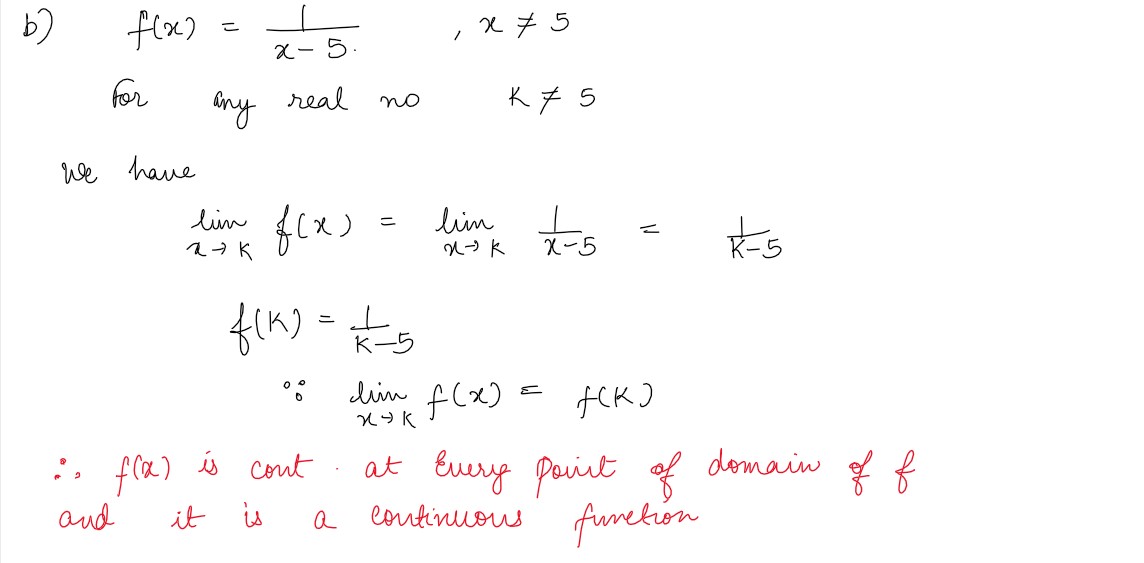 b) f(x) = 1/(x-5) , x ≠ 5
For any real no K ≠ 5
We have
lim x→K f(x) = lim x→K 1/(x-5) = 1/(K-5)
f(K) = 1/(K-5)
∵ lim x→K f(x) = f(K)
∴ f(x) is cont. at Every point of domain of f
and it is a continuous function